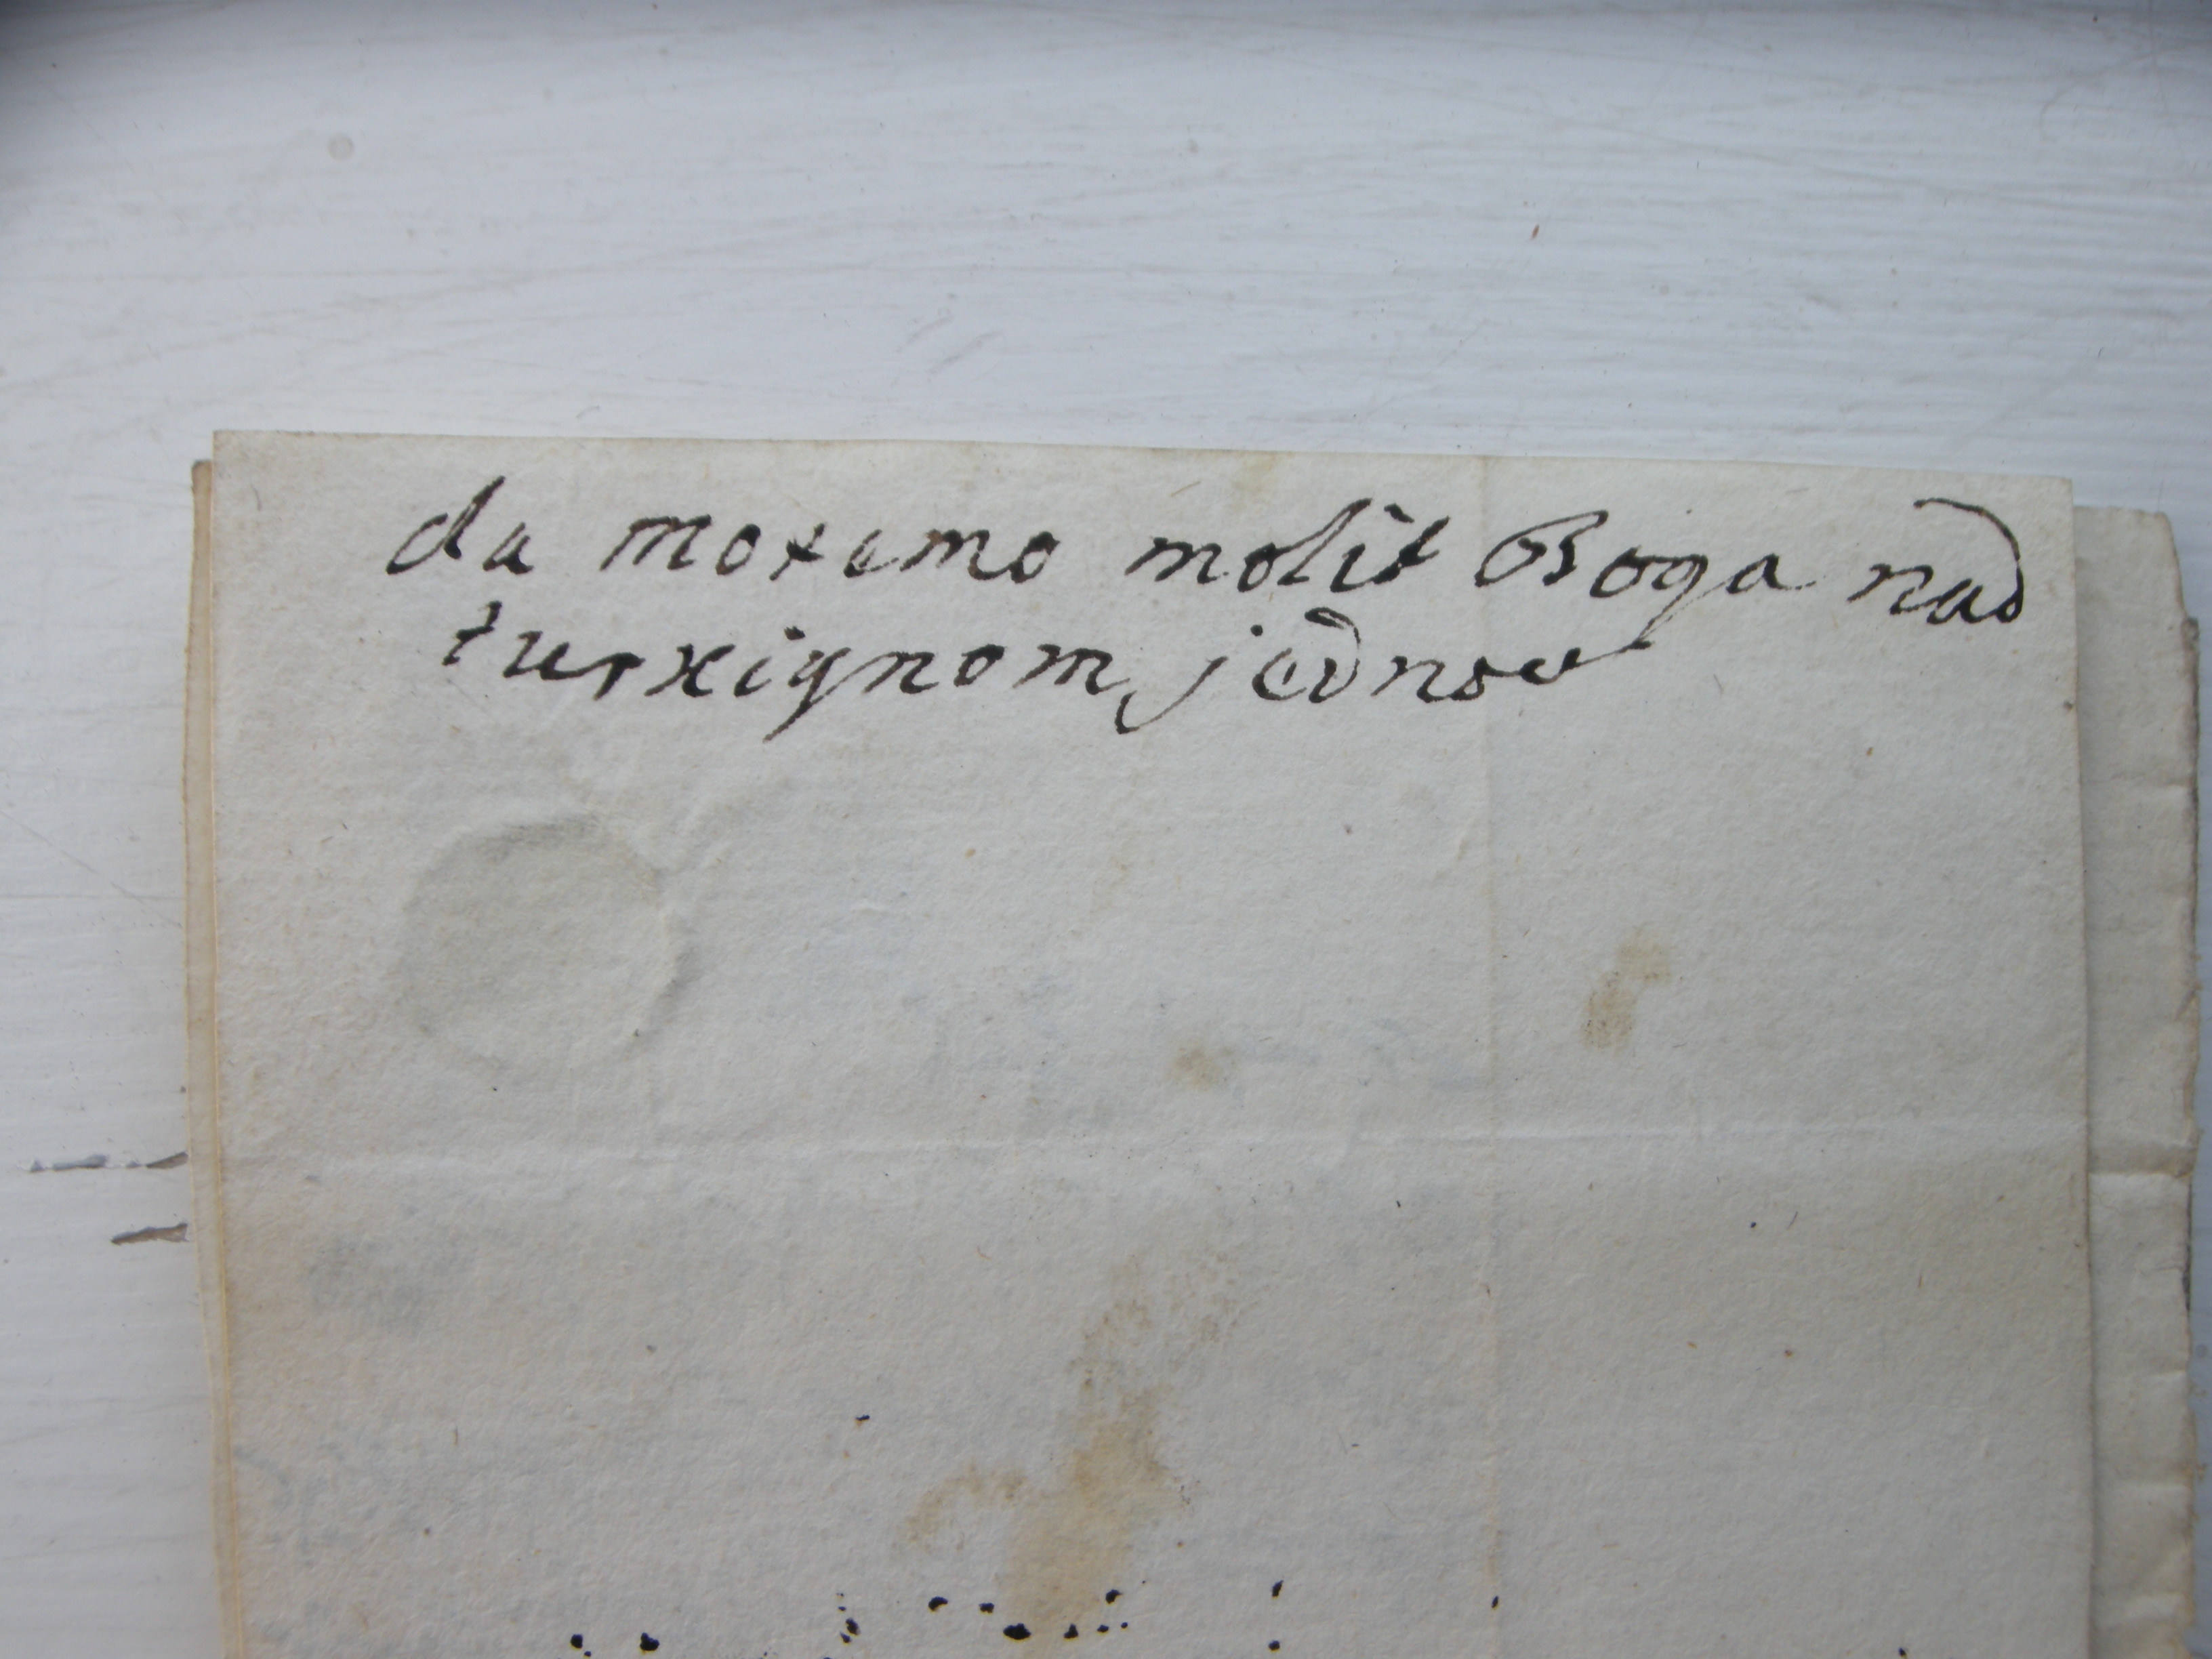 da moxemo molit Boga nad
turxignom, jednov